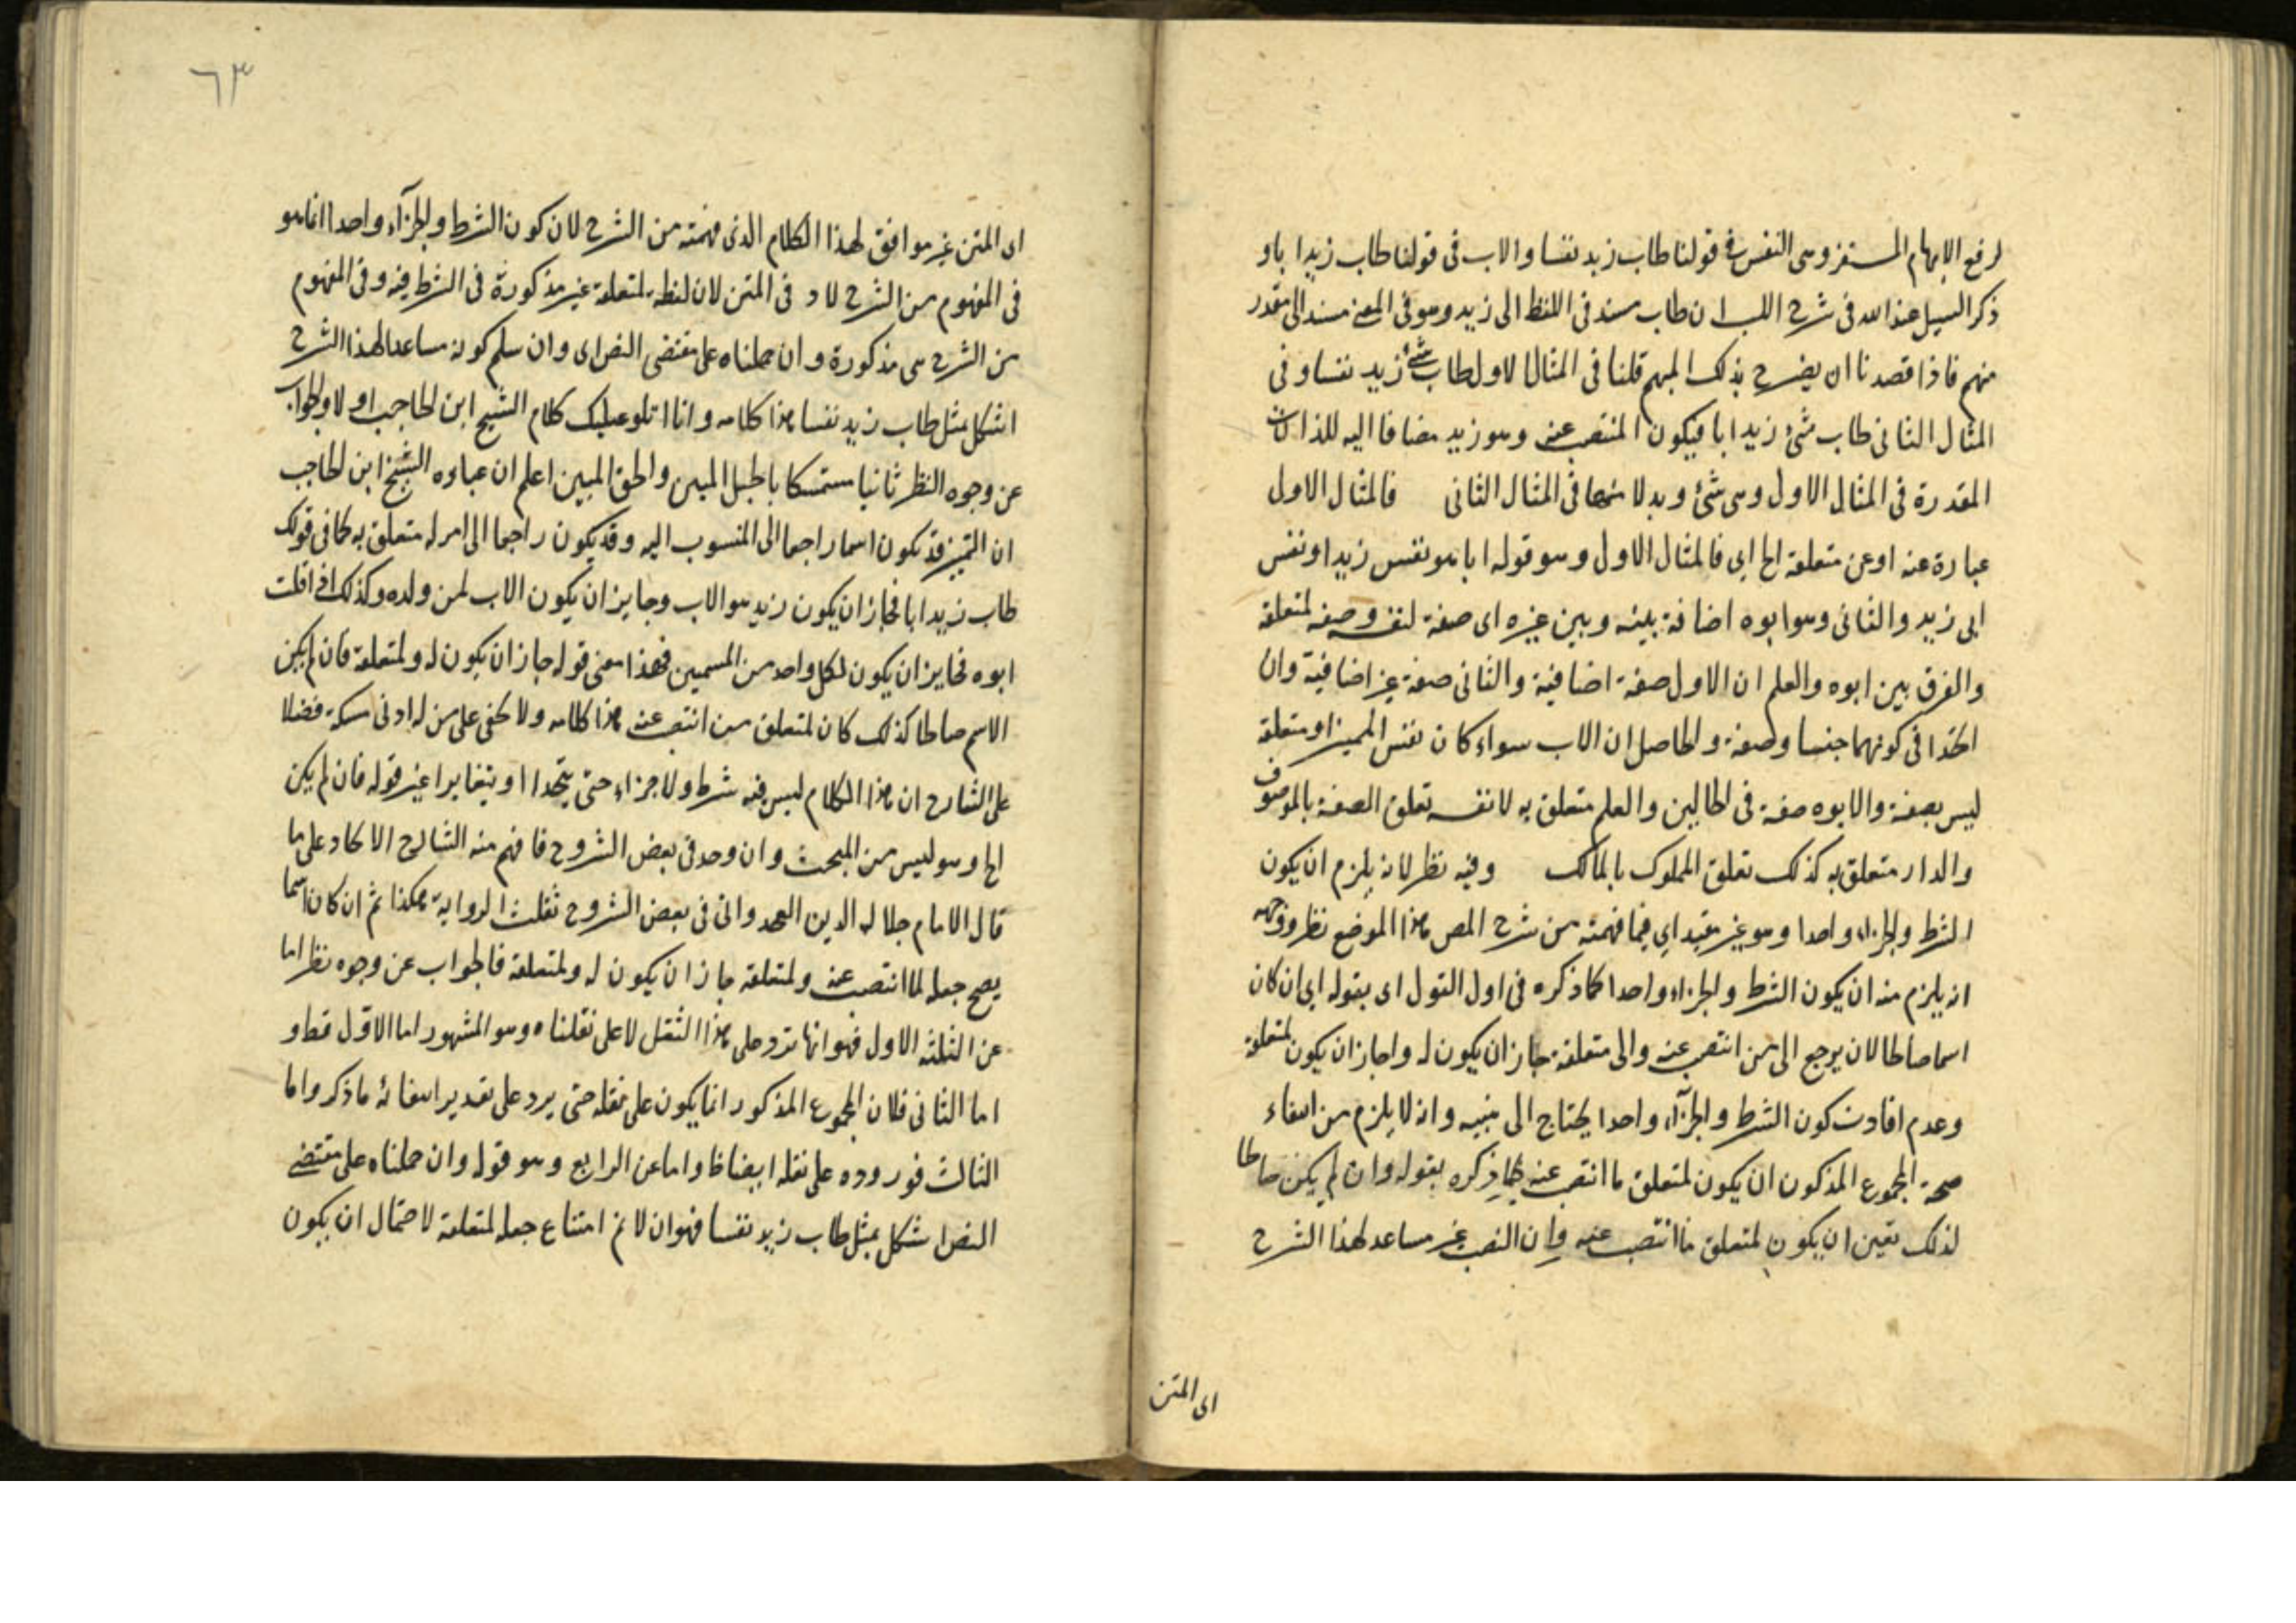 لرفع الابهام المستقر وهي النفس في قولنا طاب زيد نفسا والاب في قولنا طاب زيد ابا و
ذكر السيل عنه الله في شرح اللب ان طاب مسند في اللفظ الى زيد وهو في المعنى مسند الى مقدر
مبهم فاذا قصدنا ان يصرح بذلك المبهم قلنا في المثال الاول طاب شئ زيد نفسا وفي
المثال الثاني طاب شئ زيد ابا فيكون المنتصب عنه وهو زيد مضافا اليه للذات
المقدرة في المثال الاول وهي شئ وبدلا منها في المثال الثاني فالمثال الاول
عبارة عنه او عن متعلقه الخ اي فالمثال الاول وهو قوله ابا هو نفس زيد او نفس
ابي زيد والثاني وهو ابوه اضافة بينه وبين غيره اي صفة لنفسه وصفة لمتعلقه
والفرق بين ابوه والعلم ان الاول صفة اضافية والثاني صفة غير اضافية وان
اتحدا في كونهما جنسا وصفة والحاصل ان الاب سواء كان نفس المميز او متعلقه
ليس بصفة والابوه صفة في الحالين والعلم متعلق به لانفسه تعلق الصفة بالموصوف
والدار متعلق به كذلك تعلق المملوك بالمالك وفيه نظر لانه يلزم ان يكون
الشرط والجزاء واحدا وهو غير مقيد اي فيما فهمته من شرح المص هذا الموضع نظر ووجهه
انه يلزم منه ان يكون الشرط والجزاء واحدا كما ذكره في اول القول اي بقوله اي ان كان
اسما صالحا لان يرجع الى من انتصب عنه والى متعلقه جاز ان يكون له واجاز ان يكون لمتعلقه
وعدم افادت كون الشرط والجزآء واحدا يحتاج الى منبيه وانه لا يلزم من انتفاء
صحة المجموع المذكون ان يكون لمتعلق ما انتصب عنه كما ذكره بقوله وان لم يكن صالحا
لذلك تعين ان يكون لمتعلق ما انتصب عنه وان النصب غير مساعد لهذا الشرح
اى المتن
٦٣
اى المتن غير موافق لهذا الكلام الذى فهمته من الشرح لان كون الشرط والجزآء واحدا انما هو
في المفهوم من الشرح لا في المتن لان لفظة لمتعلقه غير مذكورة في الشرط فيه وفي المفهوم
من الشرح هي مذكورة وان حملناه على مقتضى النص اى وان سلم كونه مساعدا لهذا الشرح
اشكل مثل طاب زيد نفسا هذا كلامه وانا اتلو عليك كلام الشيخ ابن الحاجب اولا والجواب
عن وجوه النظر ثانيا مستمسكا بالحبل المبين والحق المبين اعلم ان عباره الشيخ ابن الحاجب
ان التميز قد يكون اسما راجعا الى المنسوب اليه وقد يكون راجعا الى امر له متعلق به كما في قولك
طاب زيد ابا فجاز ان يكون زيد هو الاب وجايز ان يكون الاب لمن ولده وكذلك اذا قلت
ابوه فجايز ان يكون لكل واحد من المسميين فهذا معنى قوله جاز ان يكون له ولمتعلقه فان لم يكن
الاسم صالحا كذلك كان لمتعلق من انتصب عنه هذا كلامه ولا يخفى على من له ادنى مسكة فضلا
على الشارح ان هذا الكلام ليس فيه شرط ولا جزاء حتى يتحدا او يتغايرا غير قوله فان لم يكن
الخ وهو ليس من المبحث وان وجد في بعض الشروح فافهم منه الشارح الا كاد على ما
قال الامام جلال الدين الغجدواني في بعض الشروح نقلت الرواية هكذا ثم ان كان اسما
يصح جعله لما انتصب عنه ولمتعلقه جاز ان يكون له ولمتعلقه فالجواب عن وجوه نظر اما
عن الثلثه الاول فهو انها ترد على هذا النقل لا على نقلناه وهو المشهور اما الاول فظ و
اما الثاني فلان المجموع المذكور انما يكون على نقله حتى يرد على تقدير انتفائه ما ذكر واما
الثالث فوروده على نقله ايضا ظ واما عن الرابع وهو قوله وان حملناه على مقتضى
النص اشكل بمثل طاب زيد نفسا فهو ان لا نم امتناع جعله لمتعلقه لاحتمال ان يكون